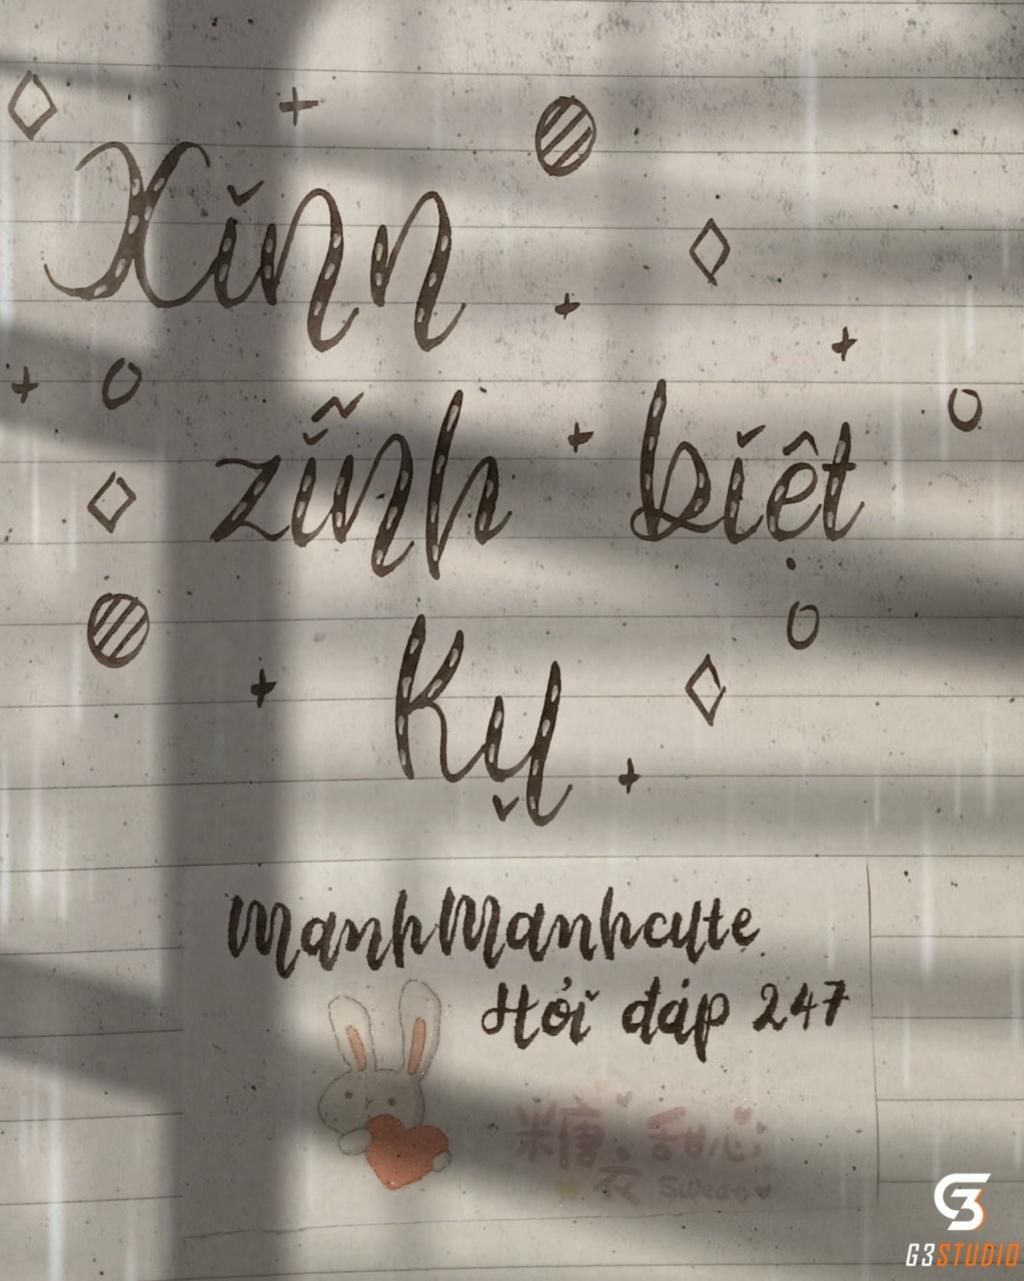 Xinn
zĩnh biệt
Kỵ
ManhManhcute
Hỏi đáp 247
糖、甜心
衣 Sweet
G3STUDIO